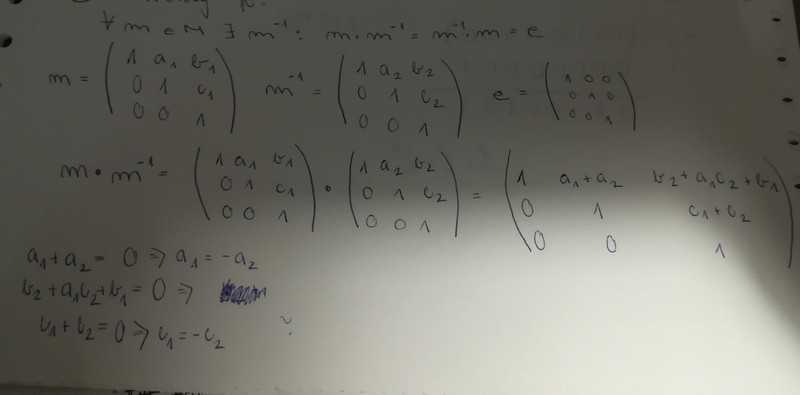 ∀ m ∈ M ∃ m⁻¹: m · m⁻¹ = m⁻¹ · m = e
m = ( 1 a₁ b₁ ; 0 1 c₁ ; 0 0 1 ) m⁻¹ = ( 1 a₂ b₂ ; 0 1 c₂ ; 0 0 1 ) e = ( 1 0 0 ; 0 1 0 ; 0 0 1 )
m · m⁻¹ = ( 1 a₁ b₁ ; 0 1 c₁ ; 0 0 1 ) · ( 1 a₂ b₂ ; 0 1 c₂ ; 0 0 1 ) = ( 1 a₁+a₂ b₂+a₁c₂+b₁ ; 0 1 c₁+c₂ ; 0 0 1 )
a₁+a₂ = 0 ⇒ a₁ = -a₂
b₂+a₁c₂+b₁ = 0 ⇒
c₁+c₂ = 0 ⇒ c₁ = -c₂ ?